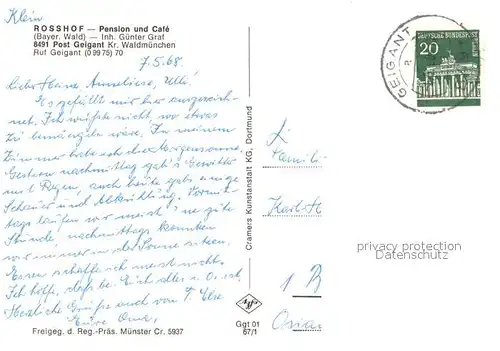 Klein
ROSSHOF — Pension und Café
(Bayer. Wald) — Inh. Günter Graf
8491 Post Geigant Kr. Waldmünchen
Ruf Geigant (0 99 75) 70
7.5.68.
Liebe Heine, Anneliese, Ulli!
Es gefällt mir hier ausgezeich-
net. Ich wüßte nicht wo etwas
zu bemängeln wäre. In meinem
Zimmer habe ich die Morgensonne.
Gestern nachmittag gab's Gewitter
mit Regen, auch heute gab's einige
Schauer und Abkühlung. Vormit-
tags laufen wir meist 'ne gute
Stunde, nachmittags konnten
wir immer in der Sonne sitzen.
Essen schaffe ich meist nicht.
Ich hoffe, daß Euch alles i. O. ist.
Herzliche Grüße auch von T. Else
Eure Oma.
Freigeg. d. Reg.-Präs. Münster Cr. 5937
Cramers Kunstanstalt KG, Dortmund
Ggt 01
67/1
GEIGANT
DEUTSCHE BUNDESPOST
20
Famili
Karl-H
1 B
privacy protection
Datenschutz